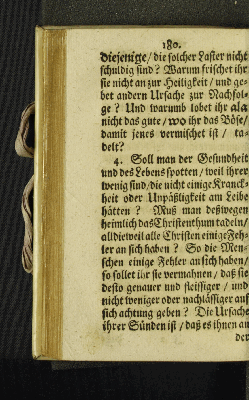 180.
diejenige / die solcher Laster nicht
schuldig sind? Warum frischet ihr
sie nicht an zur Heiligkeit / und ge-
bet andern Ursache zur Nachfol-
ge? Und warumb lobet ihr als
nicht das gute / wo ihr das Böse /
damit jenes vermischet ist / ta-
delt?
4. Soll man der Gesundheit
und des Lebens spotten / weil ihrer
wenig sind / die nicht einige Kranck-
heit oder Unpäßligkeit am Leibe
hätten? Muß man deßwegen
heimlich das Christenthum tadeln /
alldieweil alle Christen einige Feh-
ler an sich haben? So die Men-
schen einige Fehler an sich haben /
so sollet ihr sie vermahnen / daß sie
desto genauer und fleissiger / und
nicht weniger oder nachlässiger auf
sich achtung geben? Die Ursache
ihrer Sünden ist / daß es ihnen an
der